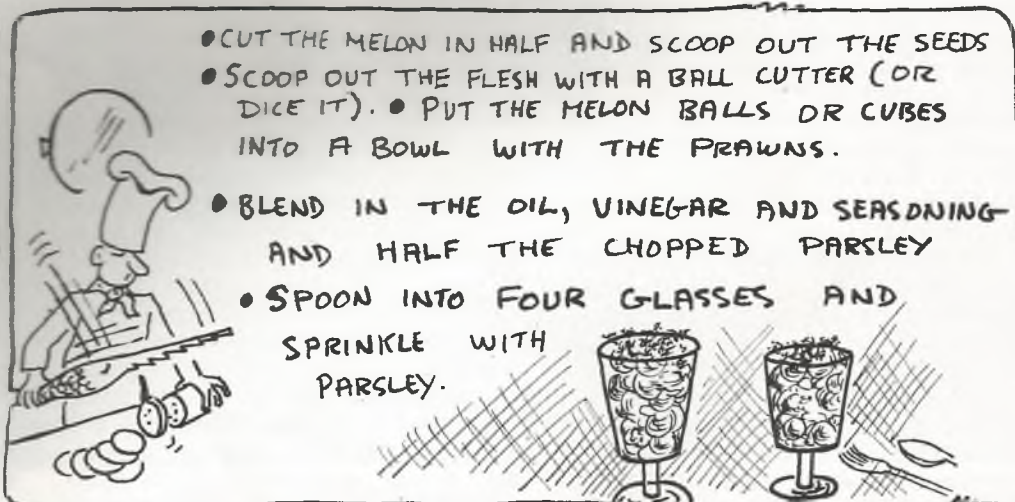 • CUT THE MELON IN HALF AND SCOOP OUT THE SEEDS
• SCOOP OUT THE FLESH WITH A BALL CUTTER (OR
DICE IT). • PUT THE MELON BALLS OR CUBES
INTO A BOWL WITH THE PRAWNS.
• BLEND IN THE OIL, VINEGAR AND SEASONING
AND HALF THE CHOPPED PARSLEY
• SPOON INTO FOUR GLASSES AND
SPRINKLE WITH
PARSLEY.